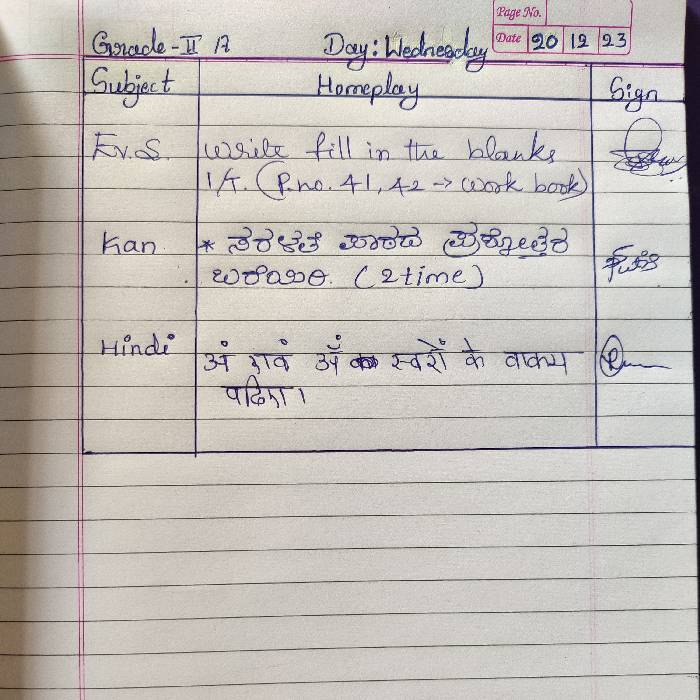 Page No.
Date 20 12 23
Grade-II A Day: Wednesday
Subject Homeplay Sign
Ev.S. Write fill in the blanks
1/t. (P.no. 41, 42 → work book)
Kan * ಸರಳತೆ ಪಾಠದ ಪ್ರಶ್ನೋತ್ತರ
ಬರೆಯಿರಿ. (2 time)
Hindi अं एवं अँ स्वरों के वाक्य
पढिए।